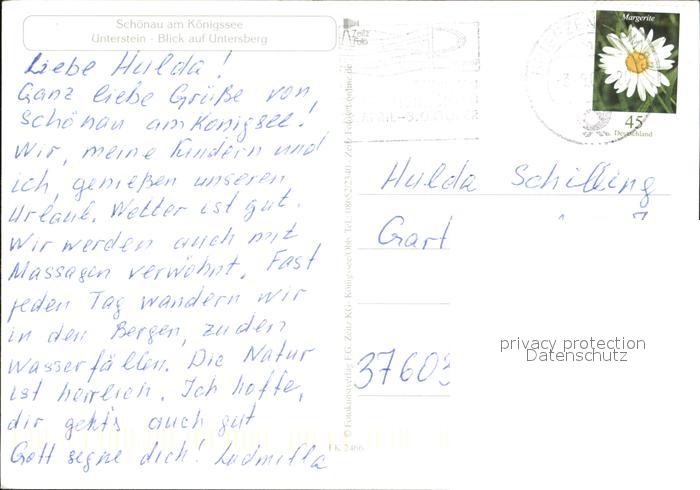 Schönau am Königssee
Unterstein - Blick auf Untersberg
Liebe Hulda!
Ganz liebe Grüße von
Schönau am Königsee!
Wir, meine Kindern und
ich, genießen unseren
Urlaub. Wetter ist gut.
Wir werden auch mit
Massagen verwöhnt. Fast
jeden Tag wandern wir
in den Bergen, zu den
Wasserfällen. Die Natur
ist herrlich. Ich hoffe,
dir geht's auch gut
Gott segne dich! Ludmilla
Margerite
45
Deutschland
Hulda Schilling
Gart
37603
privacy protection
Datenschutz
FK 2466